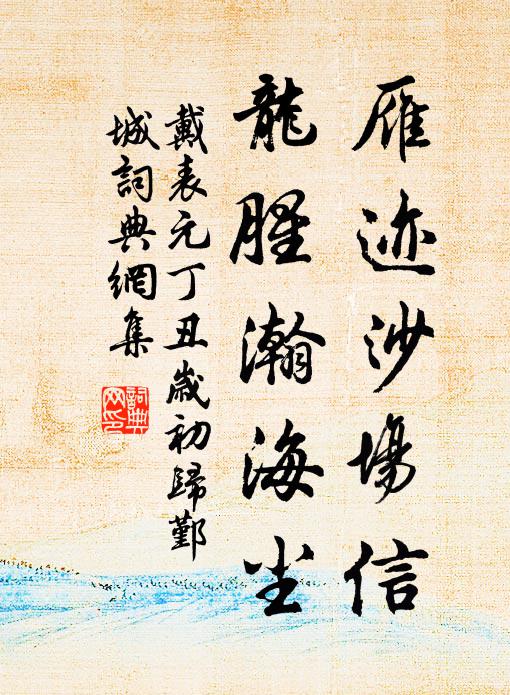 雁迹沙場信
龍腥瀚海尘
戴表元丁丑歲初歸鄞
城詞典網集
詞典
网印